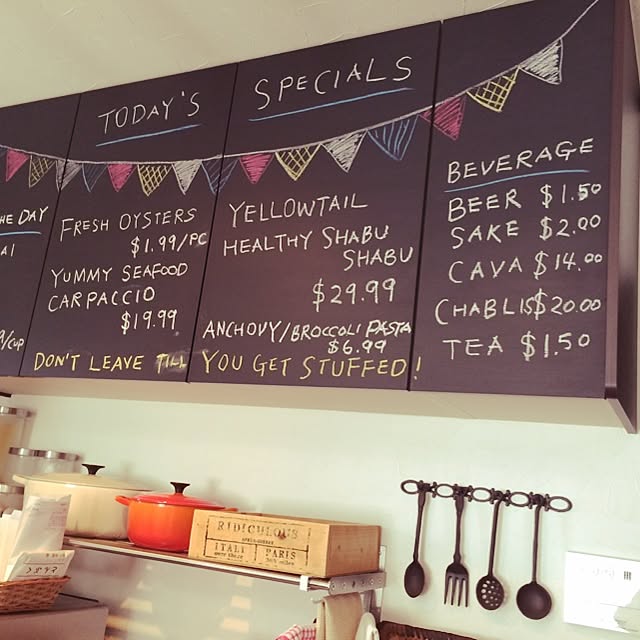 HE DAY
TODAY'S
SPECIALS
FRESH OYSTERS
$1.99/PC
YUMMY SEAFOOD
CARPACCIO
$19.99
YELLOWTAIL
HEALTHY SHABU
SHABU
$29.99
ANCHOVY/BROCCOLI PASTA
$6.99
DON'T LEAVE TILL YOU GET STUFFED!
/CUP
BEVERAGE
BEER $1.50
SAKE $2.00
CAVA $14.00
CHABLIS $20.00
TEA $1.50
RIDICULOUS
ITALI PARIS